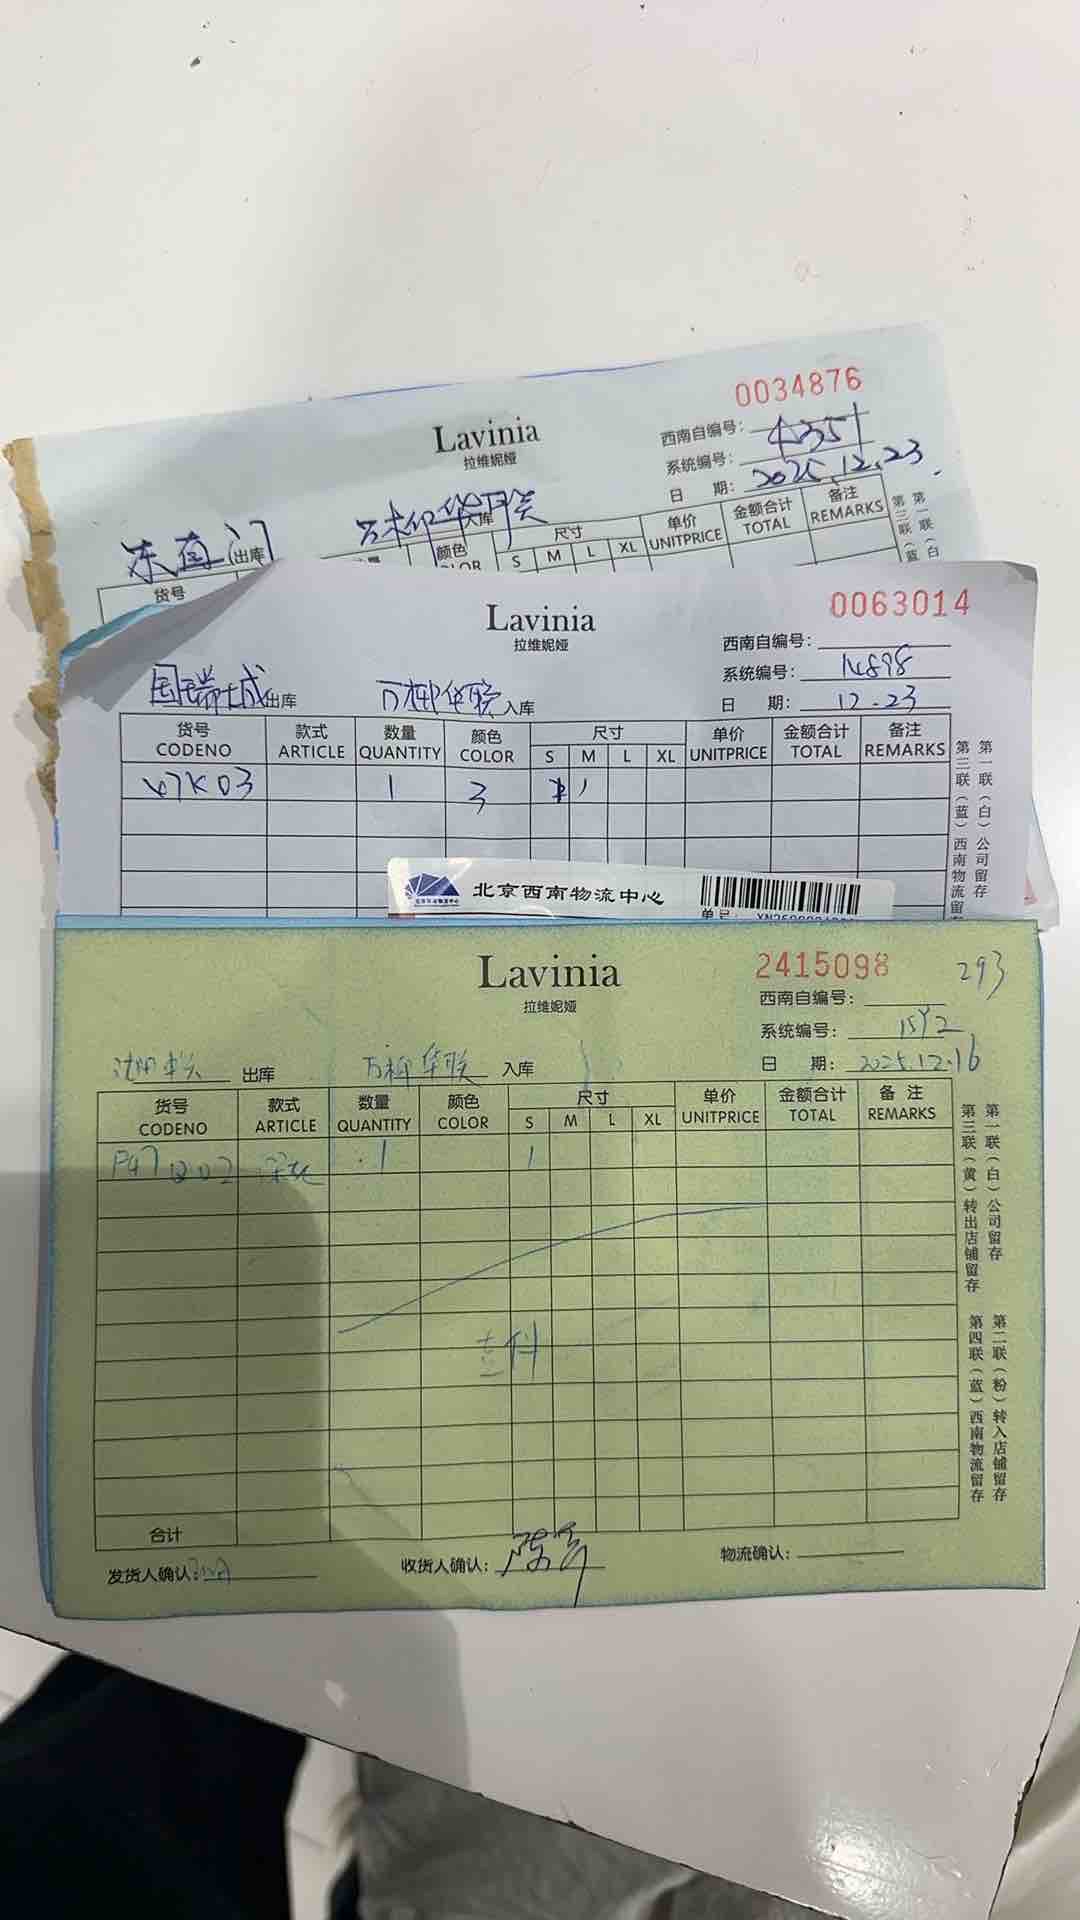 0034876
Lavinia
拉维妮娅
西南自编号：
系统编号： 4351
日 期： 2025.12.23.
东直门 出库 万柳华联 入库
货号 数量 颜色 尺寸 单价 金额合计 备注
COLOR S M L XL UNITPRICE TOTAL REMARKS
第一联（白）
第三联（蓝）
0063014
Lavinia
拉维妮娅
西南自编号：
系统编号： 14898
日 期： 12.23
国瑞城 出库 万柳华联 入库
货号 款式 数量 颜色 尺寸 单价 金额合计 备注
CODENO ARTICLE QUANTITY COLOR S M L XL UNITPRICE TOTAL REMARKS
47K03 1 3 1
第一联（白）公司留存
第三联（蓝）西南物流留
北京西南物流中心
单号：
2415098
293
Lavinia
拉维妮娅
西南自编号：
系统编号：
日 期： 2025.12.16
出库 万柳华联 入库
货号 款式 数量 颜色 尺寸 单价 金额合计 备注
CODENO ARTICLE QUANTITY COLOR S M L XL UNITPRICE TOTAL REMARKS
P47Q02 1 1
壹件
合计
发货人确认： 收货人确认： 物流确认：
第一联（白）公司留存
第三联（黄）转出店铺留存
第二联（粉）转入店铺留存
第四联（蓝）西南物流留存